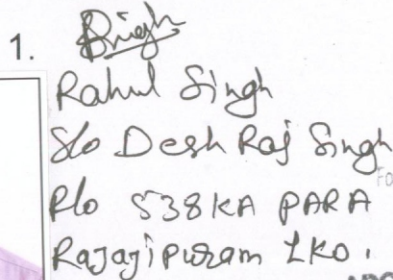 1.
Rahul Singh
S/o Desh Raj Singh
R/o 538KA PARA
Rajajipuram LKO.